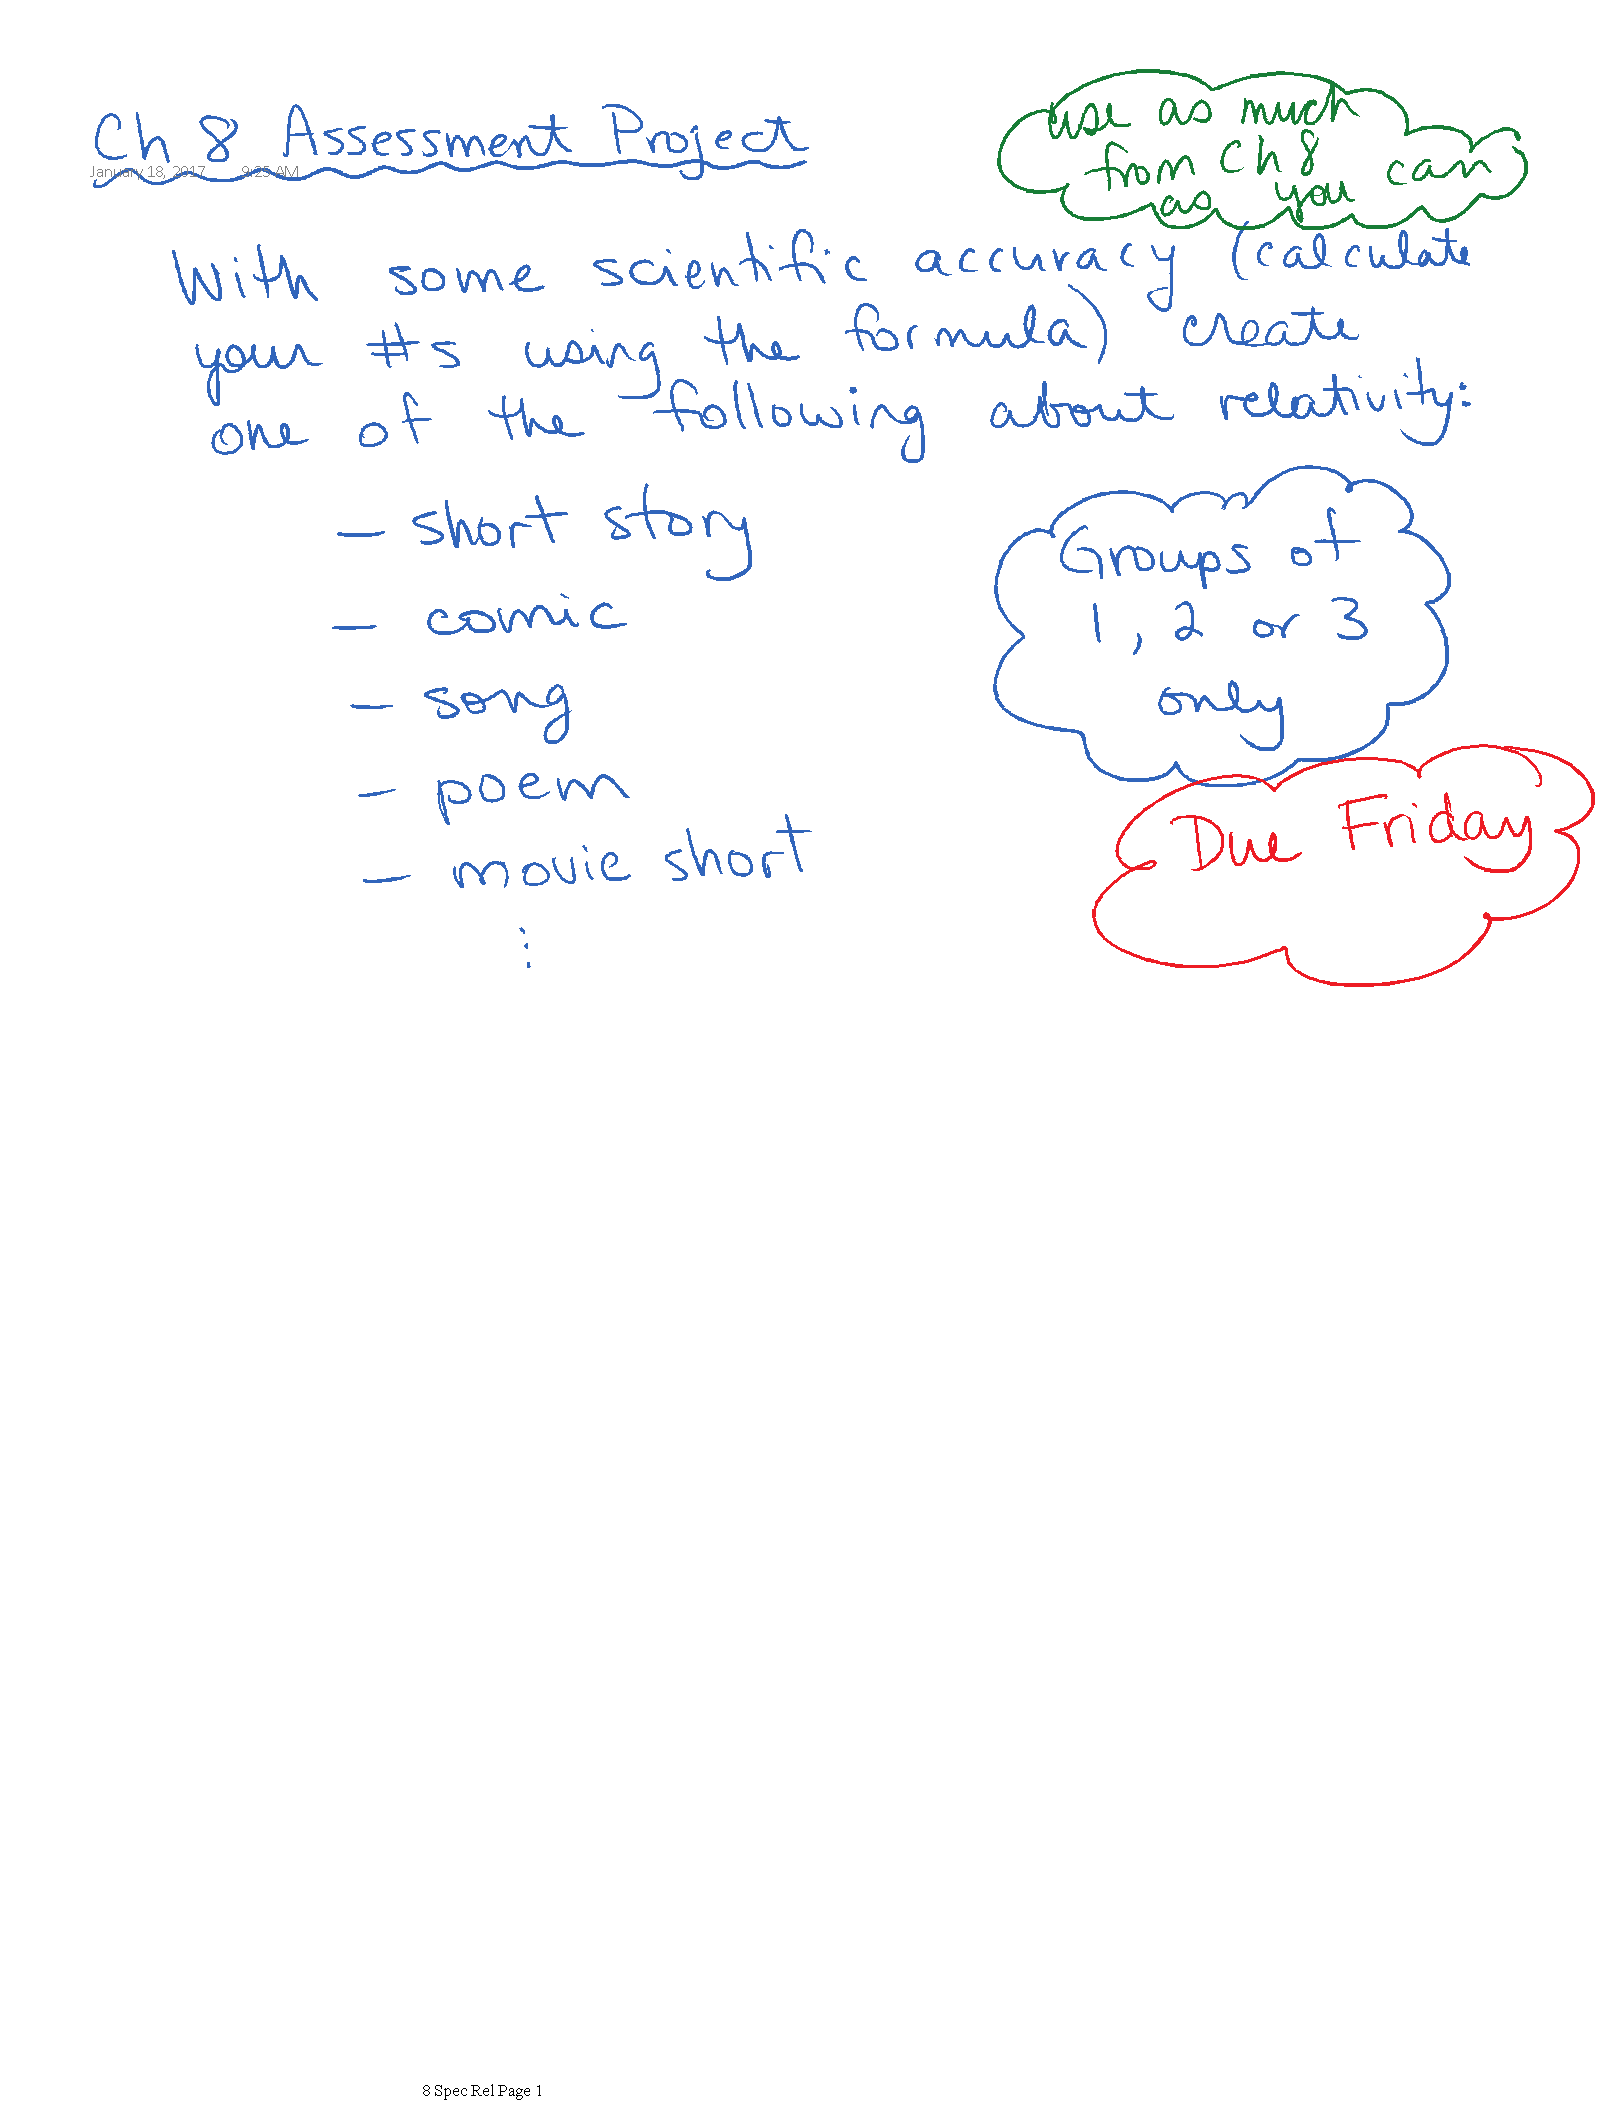 Ch 8 Assessment Project
January 18, 2017 9:25 AM
use as much
from Ch 8
as you can
With some scientific accuracy (calculate
your #s using the formula) create
one of the following about relativity:
- short story
- comic
- song
- poem
- movie short
⋮
Groups of
1, 2 or 3
only
Due Friday
8 Spec Rel Page 1